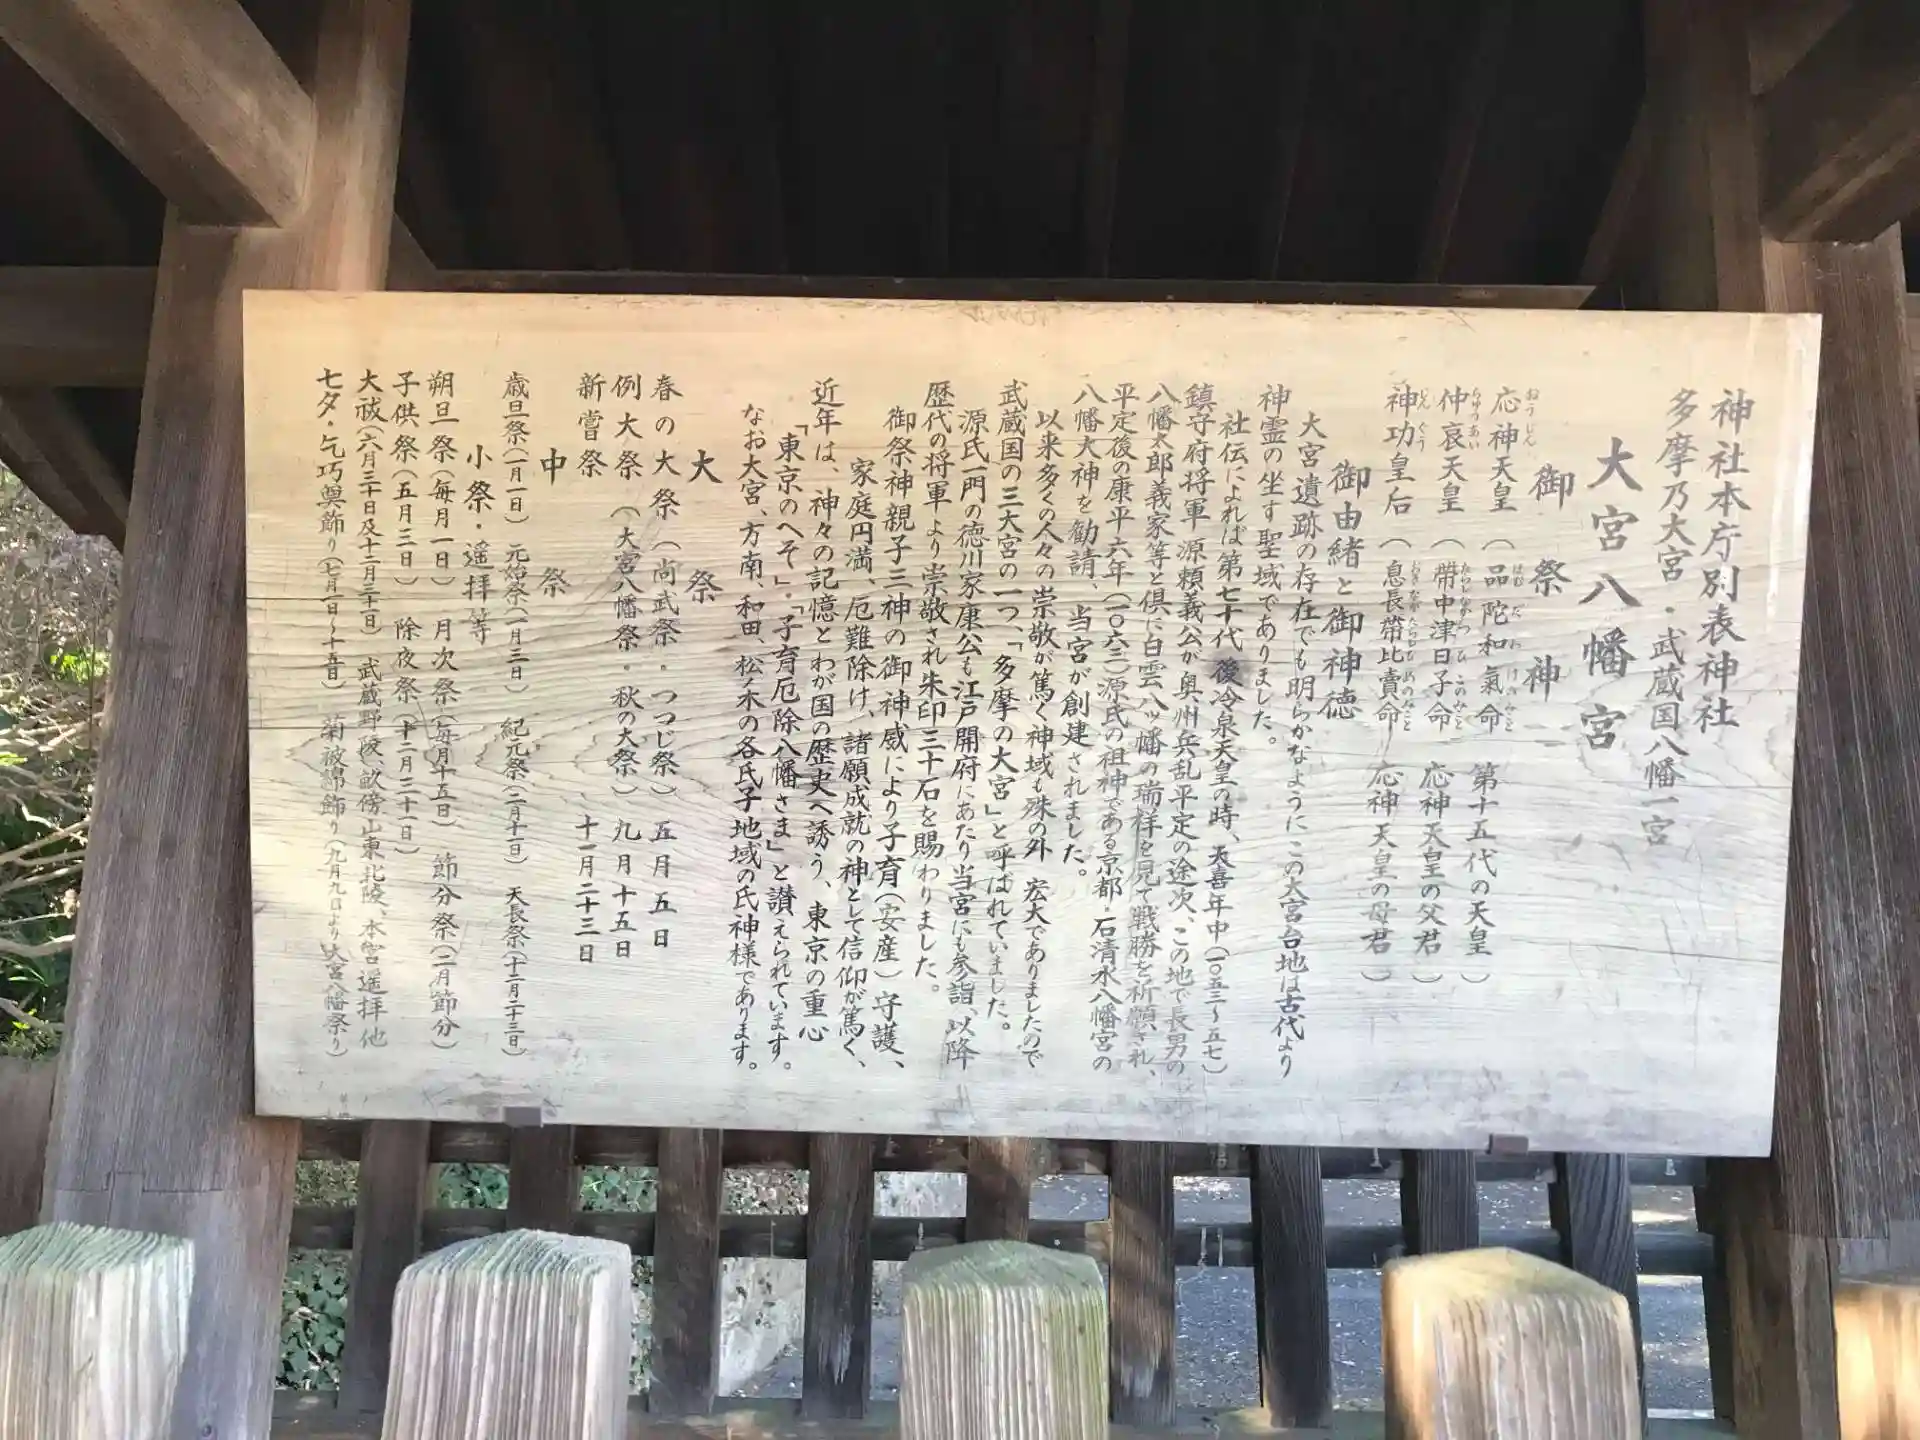 神社本庁別表神社
多摩乃大宮・武蔵国八幡一宮
大宮八幡宮
御祭神
応神天皇（品陀和氣命 第十五代の天皇）
おうじん ほむだわけのみこと
仲哀天皇（帶中津日子命 応神天皇の父君）
ちゅうあい たらしなかつひこのみこと
神功皇后（息長帶比賣命 応神天皇の母君）
じんぐう おきながたらしひめのみこと
御由緒と御神徳
大宮遺跡の存在でも明らかなように この大宮台地は古代より
神霊の坐す聖域でありました。
社伝によれば第七十代 後冷泉天皇の時、天喜年中（一〇五三〜五七）
鎮守府将軍 源頼義公が奥州兵乱平定の途次、この地で長男の
八幡太郎義家等と倶に白雲八ッ幡の瑞祥を見て戦勝を祈願され、
平定後の康平六年（一〇六三）源氏の祖神である京都・石清水八幡宮の
八幡大神を勧請、当宮が創建されました。
以来多くの人々の崇敬が篤く神域も殊の外 宏大でありましたので
武蔵国の三大宮の一つ、「多摩の大宮」と呼ばれていました。
源氏一門の徳川家康公も江戸開府にあたり当宮にも参詣、以降
歴代の将軍より崇敬され朱印三十石を賜わりました。
御祭神親子三神の御神威により子育（安産）守護、
家庭円満、厄難除け、諸願成就の神として信仰が篤く、
近年は、神々の記憶とわが国の歴史へ誘う、東京の重心
「東京のへそ」・「子育厄除八幡さま」と讃えられています。
なお大宮、方南、和田、松ノ木の各氏子地域の氏神様であります。
大祭
春の大祭（尚武祭・つつじ祭）五月五日
例大祭（大宮八幡祭・秋の大祭）九月十五日
新嘗祭 十一月二十三日
中祭
歳旦祭（一月一日） 元始祭（一月三日） 紀元祭（二月十一日） 天長祭（十二月二十三日）
小祭・遥拝等
朔旦祭（毎月一日） 月次祭（毎月十五日） 節分祭（二月節分）
子供祭（五月三日） 除夜祭（十二月三十一日）
大祓（六月三十日及十二月三十一日） 武蔵野陵、畝傍山東北陵、本宮遥拝他
七夕・乞巧奠飾り（七月一日〜十五日） 菊被綿飾り（九月九日より大宮八幡祭り）